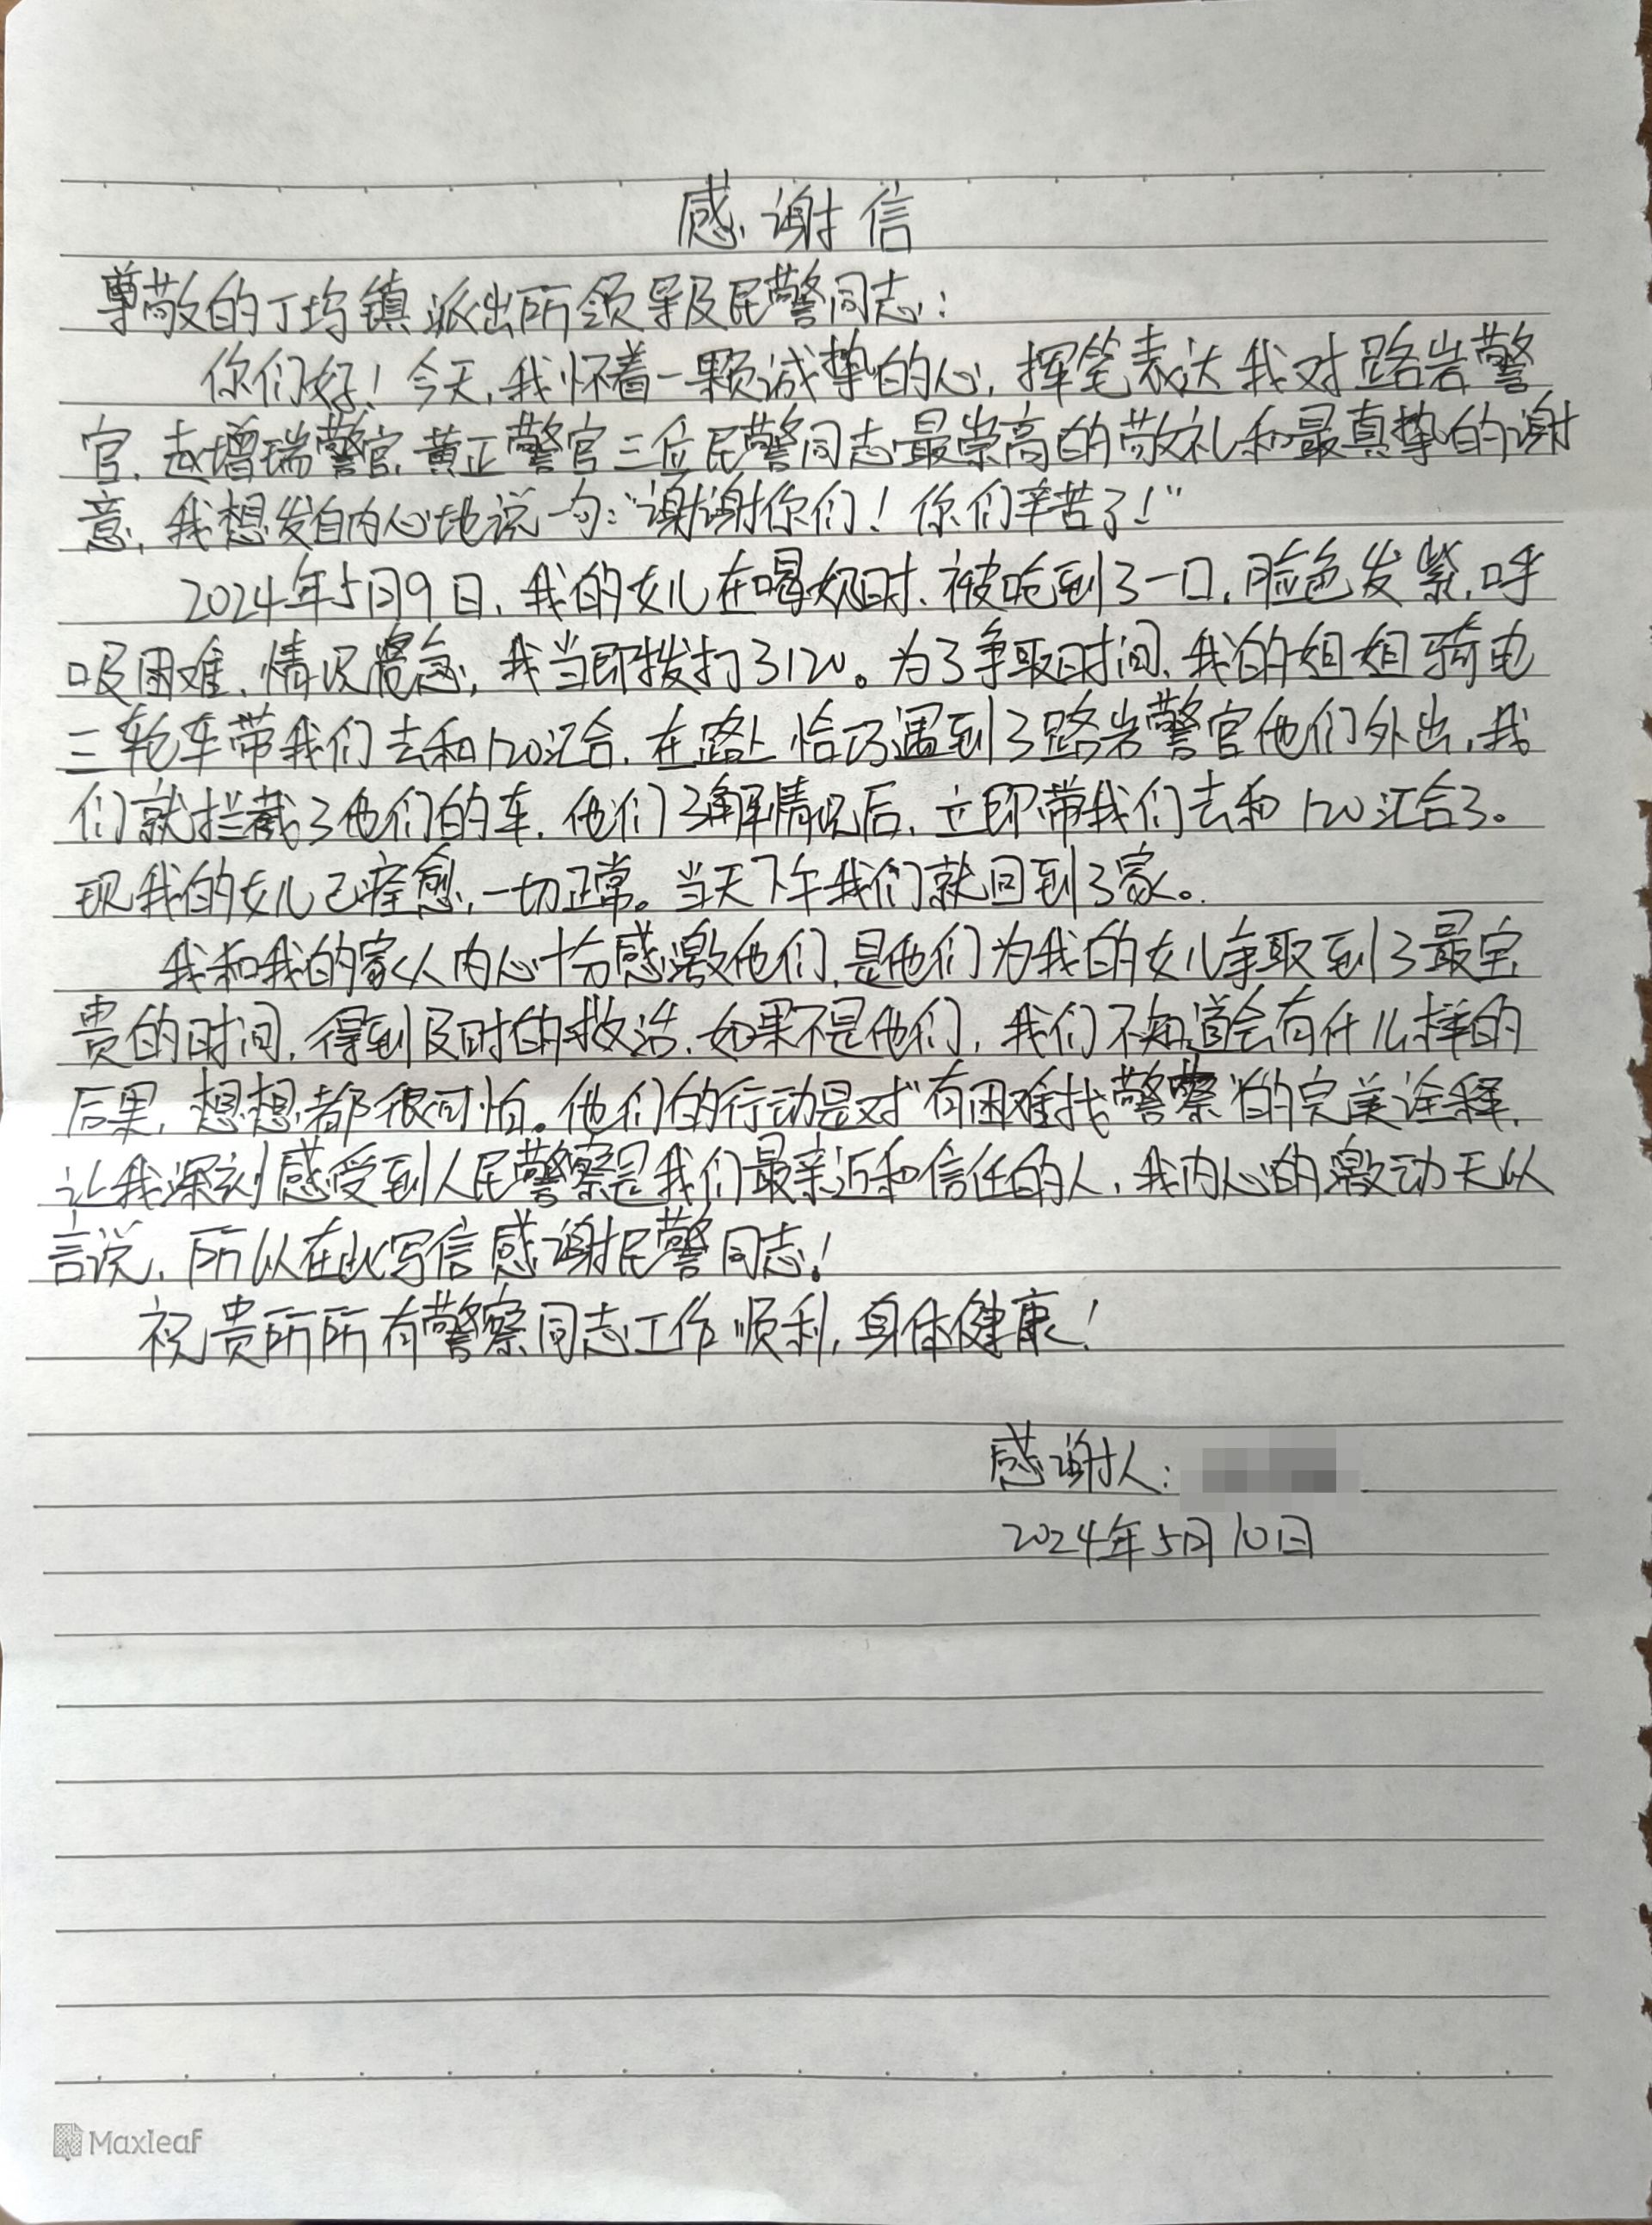 感谢信
尊敬的丁坞镇派出所领导及民警同志：
你们好！今天，我怀着一颗诚挚的心，挥笔表达我对路岩警
官、赵增瑞警官、黄正警官三位民警同志最崇高的敬礼和最真挚的谢
意，我想发自内心地说一句：“谢谢你们！你们辛苦了！”
2024年5月9日，我的女儿在喝奶时，被呛到了一口，脸色发紫，呼
吸困难，情况紧急，我当即拨打了120。为了争取时间，我的姐姐骑电
三轮车带我们去和120汇合，在路上恰巧遇到了路岩警官他们外出，我
们就拦截了他们的车，他们了解情况后，立即带我们去和120汇合了。
现我的女儿已痊愈，一切正常。当天下午我们就回到了家。
我和我的家人内心十分感激他们，是他们为我的女儿争取到了最宝
贵的时间，得到及时的救治，如果不是他们，我们不知道会有什么样的
后果，想想都很可怕。他们的行动是对“有困难找警察”的完美诠释，
让我深刻感受到人民警察是我们最亲近和信任的人，我内心的激动无以
言说，所以在此写信感谢民警同志！
祝贵所所有警察同志工作顺利，身体健康！
感谢人：
2024年5月10日
Maxleaf